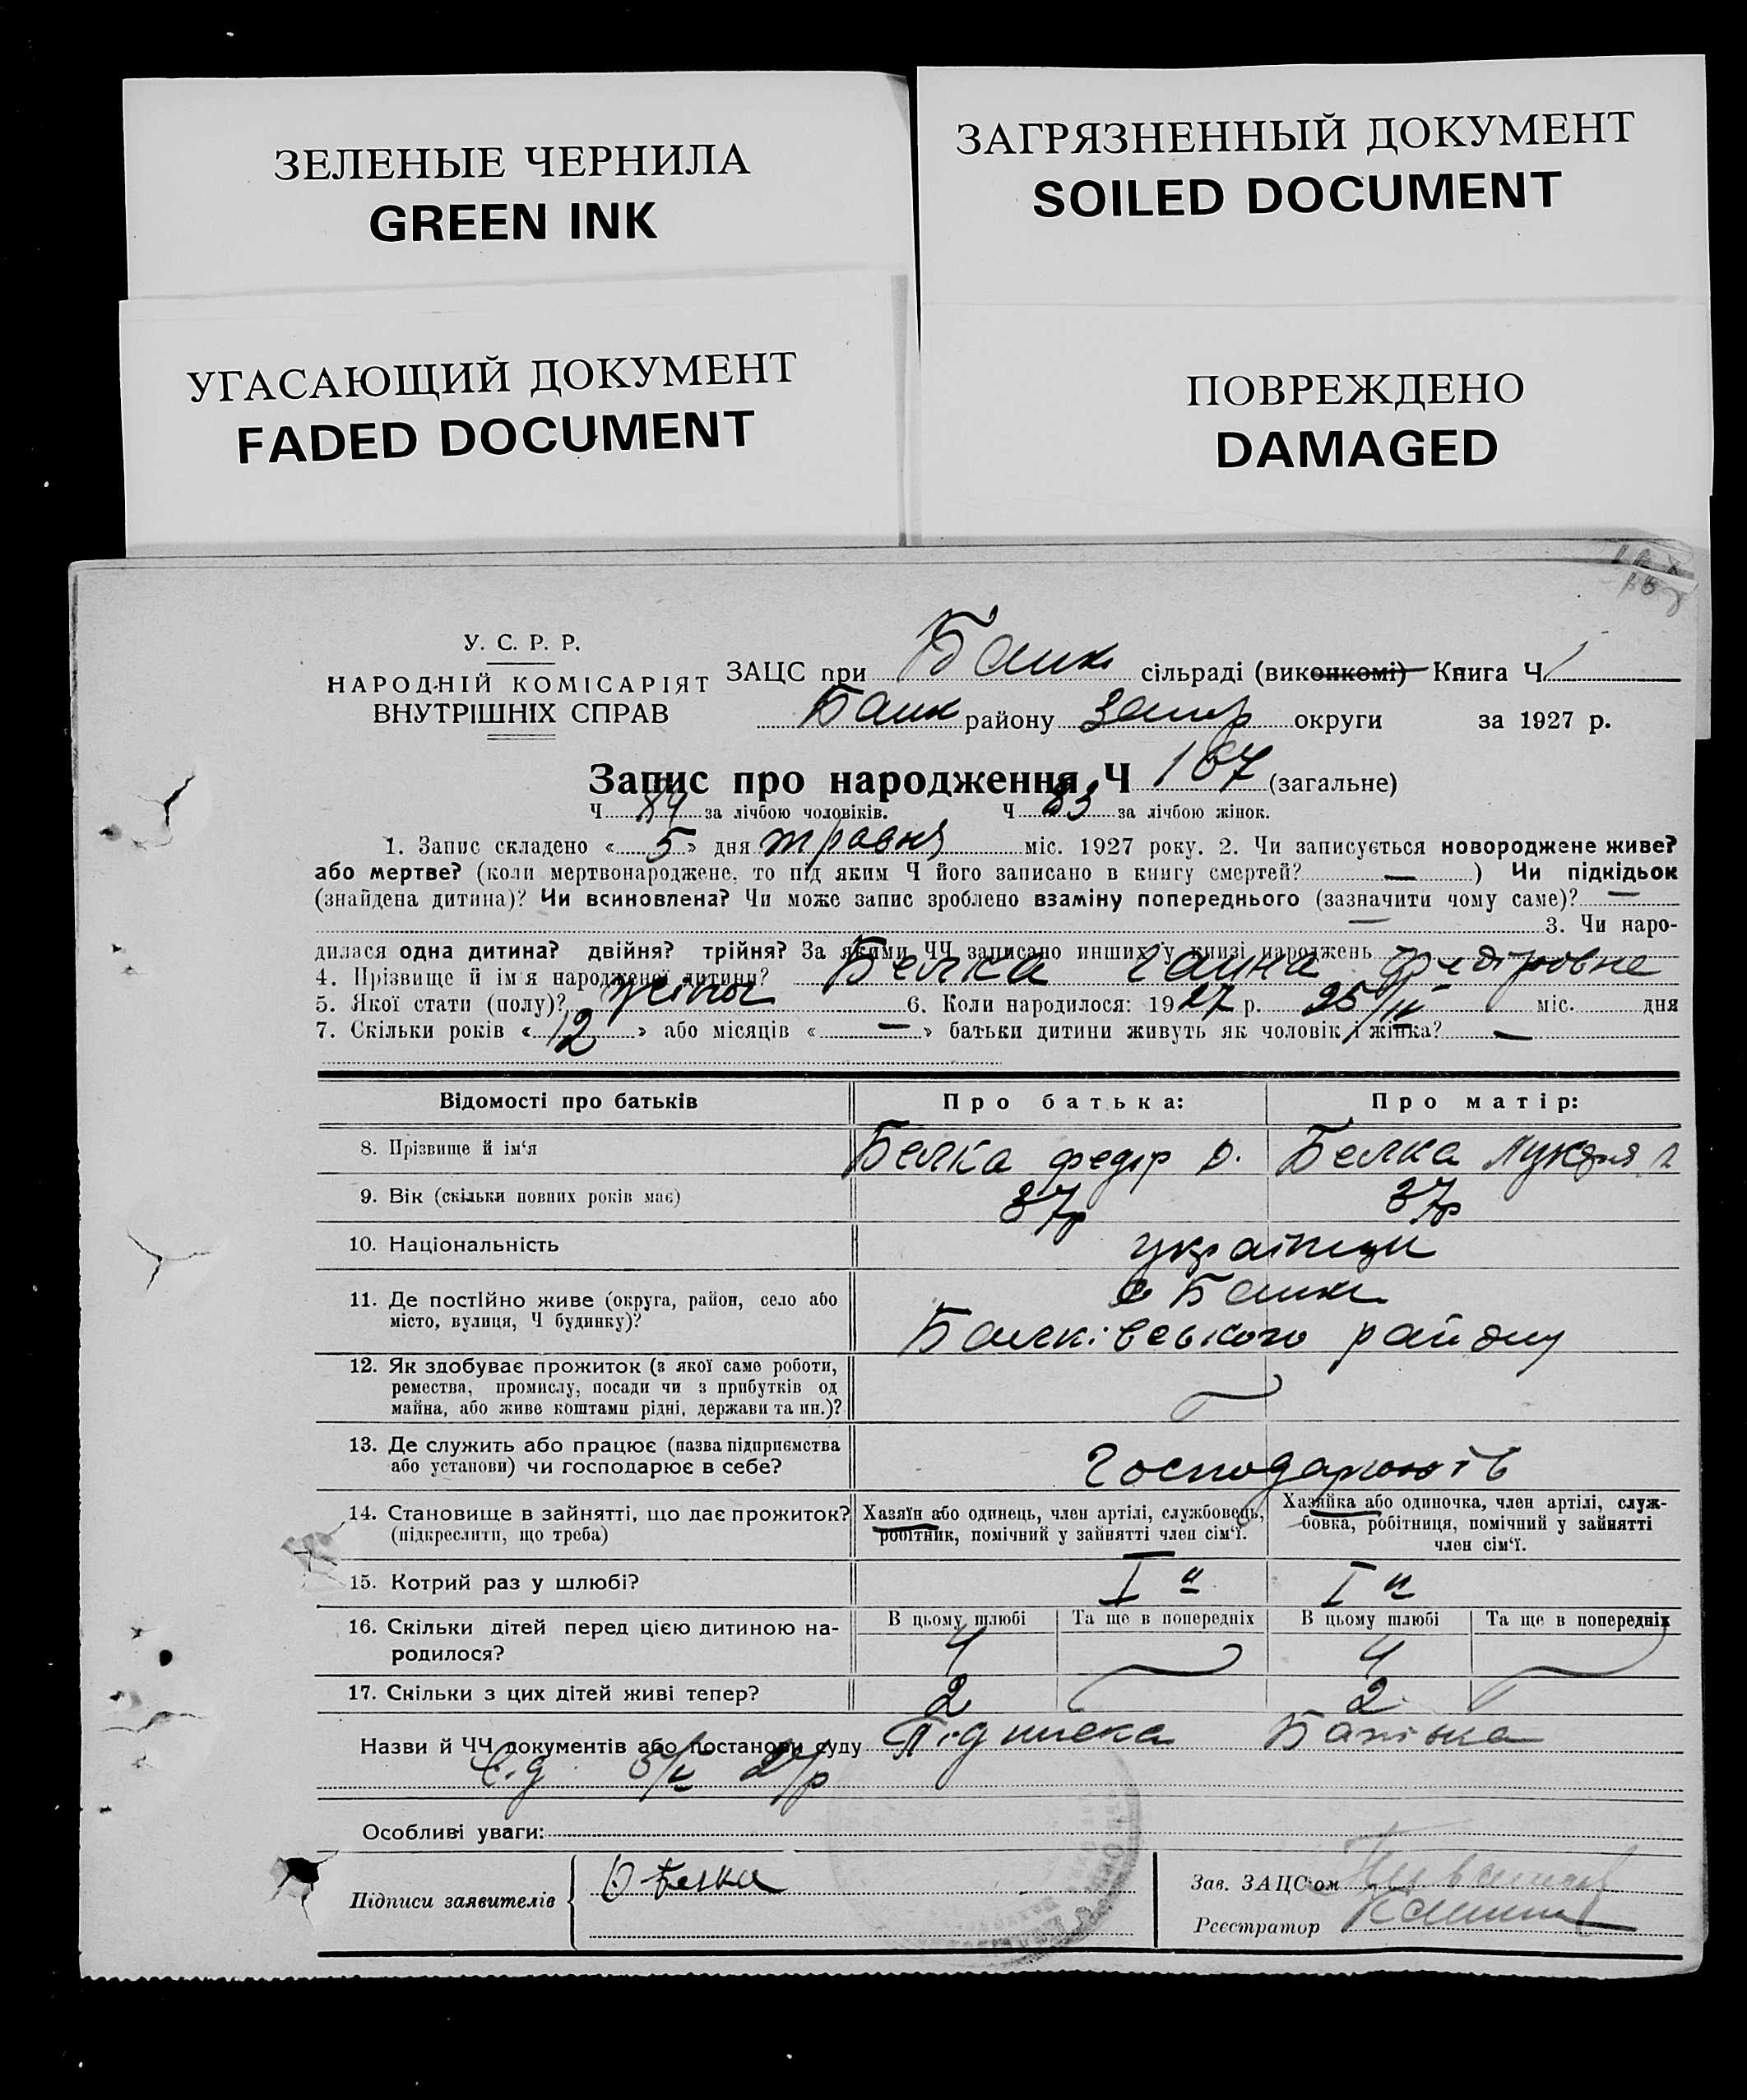 ЗЕЛЕНЫЕ ЧЕРНИЛА
GREEN INK
ЗАГРЯЗНЕННЫЙ ДОКУМЕНТ
SOILED DOCUMENT
УГАСАЮЩИЙ ДОКУМЕНТ
FADED DOCUMENT
ПОВРЕЖДЕНО
DAMAGED
У. С. Р. Р.
НАРОДНІЙ КОМІСАРІЯТ
ВНУТРІШНІХ СПРАВ
ЗАЦС при Балк сільраді (виконкомі) Книга Ч 1
Балк району Запор округи за 1927 р.
Запис про народження Ч 167 (загальне)
Ч 84 за лічбою чоловіків. Ч 83 за лічбою жінок.
1. Запис складено « 5 » дня травня міс. 1927 року. 2. Чи записується новороджене живе?
або мертве? (коли мертвонароджене, то під яким Ч його записано в книгу смертей? — ) Чи підкідьок
(знайдена дитина)? Чи всиновлена? Чи може запис зроблено взаміну попереднього (зазначити чому саме)? —
— 3. Чи наро-
дилася одна дитина? двійня? трійня? За якими ЧЧ записано инших у книзі народжень
4. Прізвище й ім'я народженої дитини? Белка Ганна Федіровне
5. Якої стати (полу)? жіноч 6. Коли народилося: 1927 р. 25/IV міс. дня
7. Скільки років « 12 » або місяців « — » батьки дитини живуть як чоловік і жінка? —
Відомості про батьків Про батька: Про матір:
8. Прізвище й ім'я Белка Федір О. Белка Лукеря
9. Вік (скільки повних років має) 37р 37р
10. Національність українци
11. Де постійно живе (округа, район, село або с Балки
місто, вулиця, Ч будинку)? Балківського району
12. Як здобуває прожиток (з якої саме роботи,
ремества, промислу, посади чи з прибутків од
майна, або живе коштами рідні, держави та ин.)? —
13. Де служить або працює (назва підприємства
або установи) чи господарює в себе? Господарюють
14. Становище в зайнятті, що дає прожиток? Хазяїн або одинець, член артілі, службовець, Хазяйка або одиночка, член артілі, служ-
(підкреслити, що треба) робітник, помічний у зайнятті член сім'ї. бовка, робітниця, помічний у зайнятті
член сім'ї.
15. Котрий раз у шлюбі? I й I й
16. Скільки дітей перед цією дитиною на- В цьому шлюбі Та ще в попередніх В цьому шлюбі Та ще в попередніх
родилося? 4 — 4 —
17. Скільки з цих дітей живі тепер? 2 — 2 —
Назви й ЧЧ документів або постанови суду Підписка
5/V 27р
Особливі уваги:
Підписи заявителів Белка
Зав. ЗАЦС'ом
Реєстратор